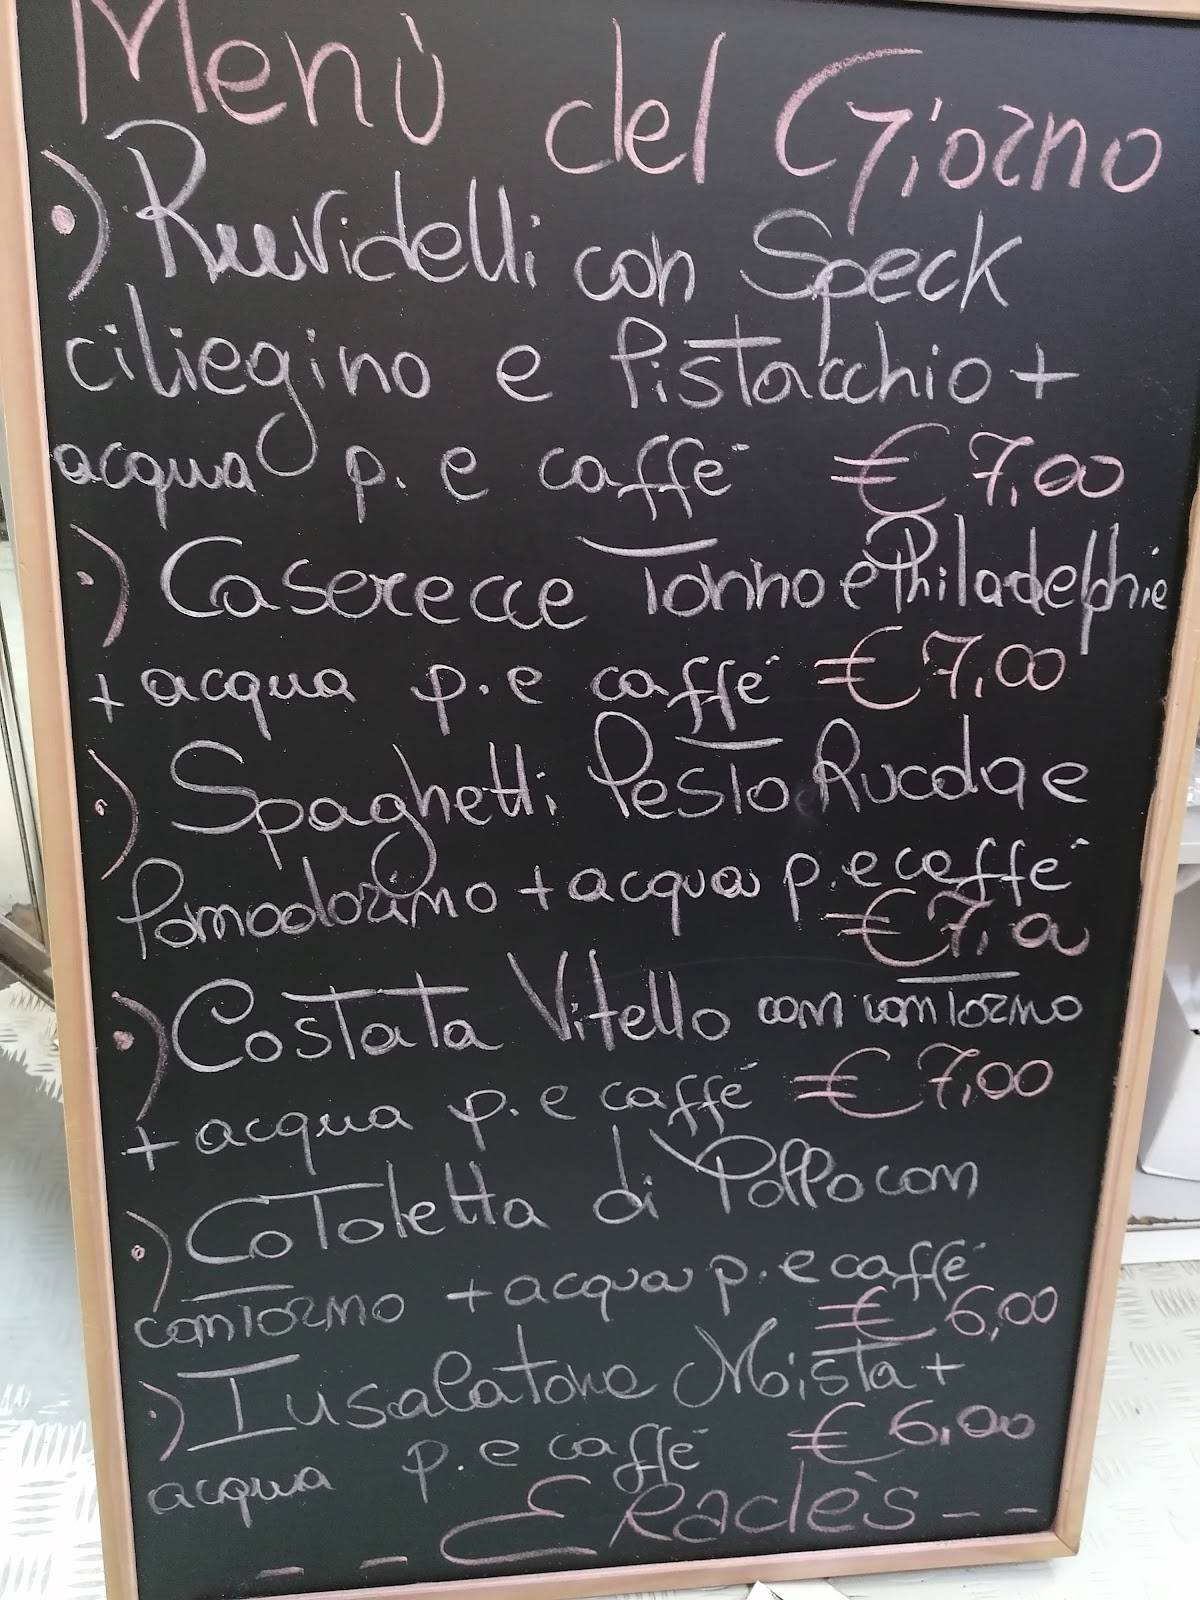 Menù del Giorno
•) Ruvidelli con Speck
ciliegino e Pistacchio +
acqua p. e caffè € 7,00
•) Caserecce Tonno e Philadelphie
+ acqua p. e caffè € 7,00
•) Spaghetti Pesto Rucola e
Pomodorino + acqua p. e caffè
€ 7,00
•) Costata Vitello con contorno
+ acqua p. e caffè € 7,00
•) Cotoletta di Pollo con
contorno + acqua p. e caffè
€ 6,00
•) Insalatona Mista +
acqua p. e caffè € 6,00
- - Eraclès - -